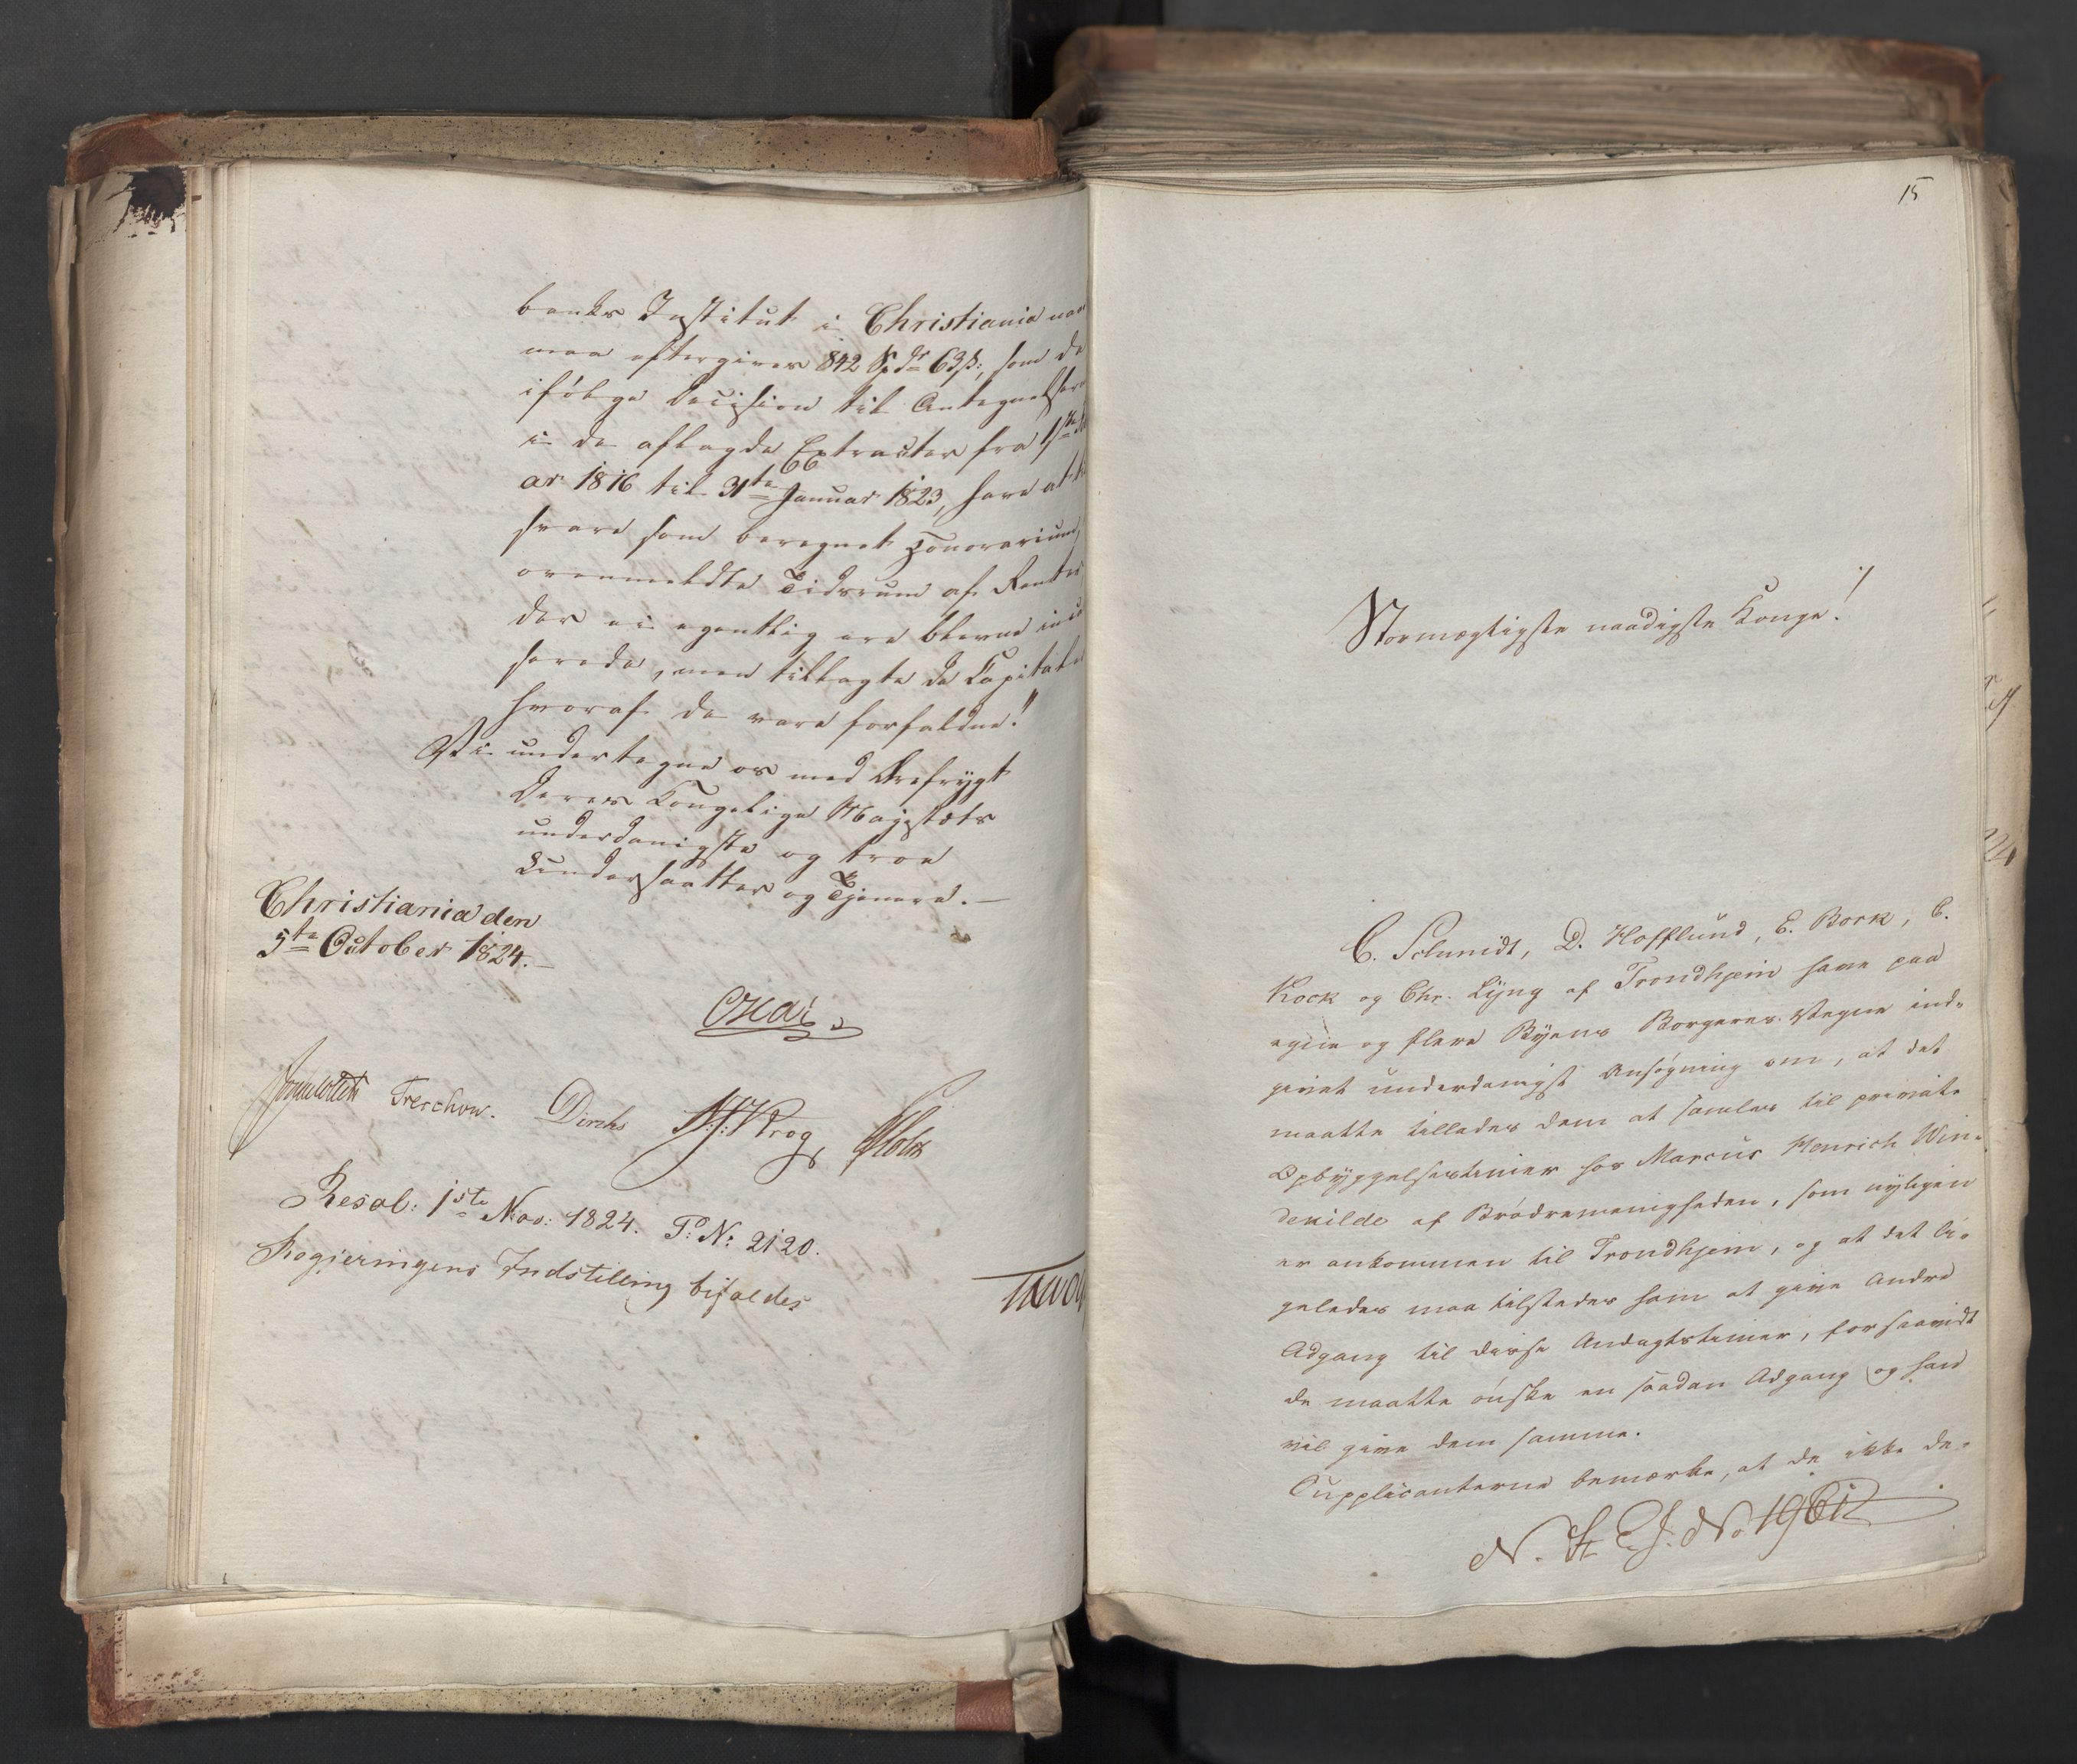 banks Institut i Christiania naa
maa eftergives 842 Spdr 63 ß:, som de
ifølge Decision til Antegnelser
i de aflagde Extracter fra 1ste
ar 1816 til 31te Januar 1823, have at
svare som beregnet Honorarium,
ovenmeldte Tidsrum af Renter,
der ei egentlig ere blevne incas
serede, men tillagte de Capitaler
hvoraf de vare forfaldne!"
Vi undertegne os med Ærefrygt
Deres Kongelige Majestæts
underdanigste og troe
Undersaatter og Tjenere. —
Christiania den
5te October 1824. —
Oscar
Sommerhielm Treschow. Diriks Krog Holst
Resol: 1ste Nov: 1824. P: No: 2120.
Regjeringens Indstilling bifaldes
15
Stormægtigste naadigste Konge!
C. Schmidt, D. Hofflund, E. Bork, C.
Kock og Chr. Lyng af Trondhjem have paa
egne og flere Byens Borgeres Vegne ind-
givet underdanigst Ansøgning om, at det
maatte tillades dem at samles til private
Opbyggelsestimer hos Marcus Henrich Win-
dekilde af Brødremenigheden, som nyligen
er ankommen til Trondhjem, og at det li-
geledes maa tilstedes ham at give Andre
Adgang til disse Andagtstimer, forsaavidt
de maatte ønske en saadan Adgang og han
vil give dem samme.
Supplicanterne bemærke, at de ikke de-
N. St. E. J. No 1961